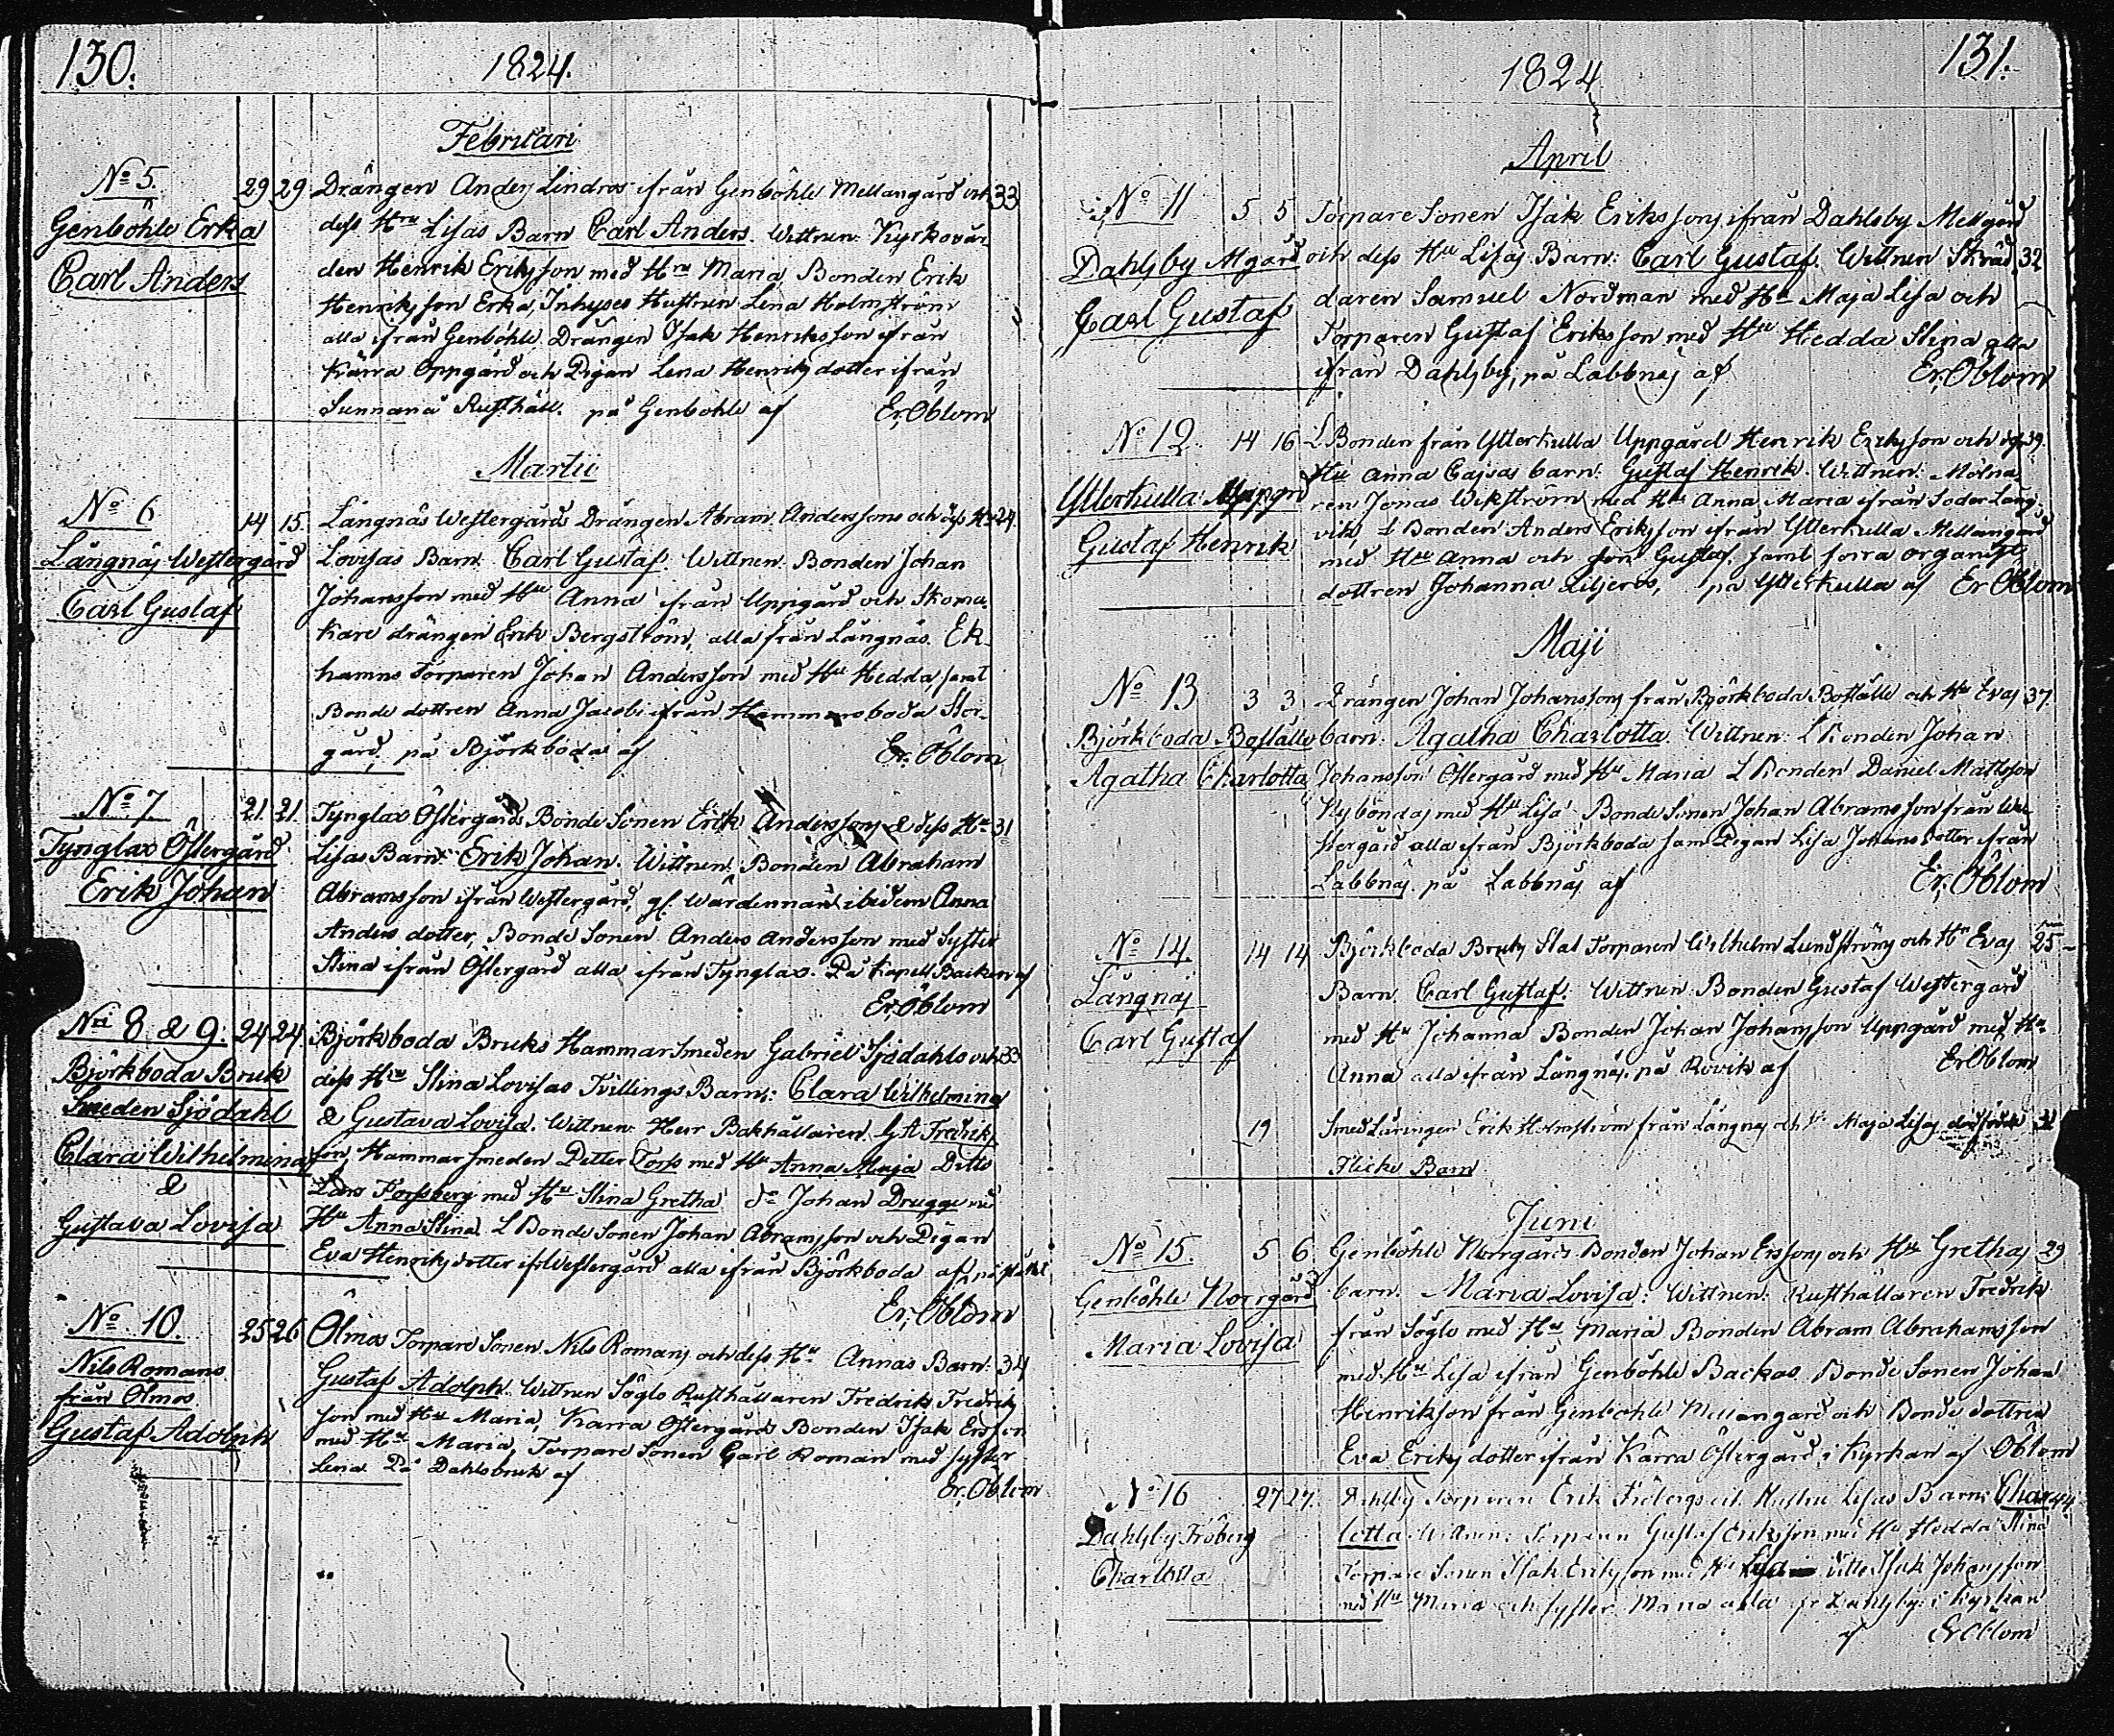 130.
1824.
Februari
No 5.
Genböhle Erka
Carl Anders
29 29 Drängen Anders Lindros ifrån Genböhle Mellangård och 33
dess Hru Lisas Barn Carl Anders. Wittnen: Kyrkovär
den Henrik Eriksson med Hru Maria, Bonden Erik
Henriksson Erka, Inhyses Hustrun Lena Holmström
alla ifrån Genböhle, Drängen Isak Henriksson ifrån
Kärra Oppgård och Pigan Lena Henriksdotter ifrån
Sunnanå Rusthåll. på Genböhle af Er. Öblom
Martii
No 6
Långnäs Westergård
Carl Gustaf
14 15. Långnäs Westergårds Drängen Abram Anderssons och dess Hu 24.
Lovisas Barn Carl Gustaf. Wittnen. Bonden Johan
Johansson med Hu Anna ifrån Uppgård och Skoma
kare drängen Erik Bergström, alla från Långnäs. Ek
hamns Torparen Johan Andersson med Hu Hedda, samt
Bonde dottren Anna Jacobs ifrån Hammarsboda Stor
gård, på Björkboda af Er. Öblom
No 7.
Tynglax Östergård
Erik Johan
21. 21. Tynglax Östergårds Bonde Sonen Erik Anderssons & dess Hu 31
Lisas Barn Erik Johan. Wittnen: Bonden Abraham
Abramsson ifrån Westergård, gl. Wärdinnan ibidem Anna
Anders dotter, Bonde Sonen Anders Andersson med Syster
Stina ifrån Östergård alla ifrån Tynglax. På Kapell Backen af
Er. Öblom
Nri 8 & 9.
Björkboda Bruk
Smeden Sjödahl
Clara Wilhelmina
&
Gustava Lovisa
24 24. Björkboda Bruks HammarSmeden Gabriel Sjödahls och 33
dess Hru Stina Lovisas Tvillings Barn: Clara Wilhelmina
& Gustava Lovisa. Wittnen: Herr Bokhållaren G A Fredrik
son, Hammar smeden Petter Torss med Hu Anna Maja Ditto
Lars Forssberg med Hu Stina Gretha do Johan Drugge med
Hu Anna Stina L Bonde Sonen Johan Abramsson och Pigan
Eva Henriksdotter ifr Westergård alla ifrån Björkboda af
Er. Öblom
No 10.
Nils Romans
från Ölmos
Gustaf Adolph
25 26 Ölmos Torpare Sonen Nils Romans och dess Hu Annas Barn: 34
Gustaf Adolph. Wittnen Söglo Rusthållaren Fredrik Fredrik
son med Hu Maria, Kärra Östergårds Bonden Isak Ersson
med Hu Maria, Torpare Sonen Carl Roman med syster
Lena På Dahlsbruk af
Er. Öblom
131.
1824
April
No 11
Dahlsby Mgård
Carl Gustaf
5 5 Torpare Sonen Isak Erikssons ifrån Dahlsby Mellgård
och dess Hu Lisas Barn: Carl Gustaf. Wittnen Skräd 32
daren Samuel Nordman med Hu Maja Lisa och
Torparen Gustaf Eriksson med Hu Hedda Stina alla
ifrån Dahlsby, på Labbnäs af Er. Öblom
No 12
Ytterkulla
Gustaf Henrik
14 16 L Bonden från Ytterkulla Uppgård Henrik Eriksson och dess 39.
Hu Anna Cajsas barn: Gustaf Henrik. Wittnen: Mölna
ren Jonas Wikström med Hu Anna Maria ifrån Söder Lång
vik, L Bonden Anders Eriksson ifrån Ytterkulla Mellangård
med Hu Anna och son Gustaf, samt förra organist
dottren Johanna Liljeros, på Ytterkulla af Er Öblom
Maji
No 13
Björkboda Boställe
Agatha Charlotta
3 3 Drängen Johan Johanssons från Björkboda Boställe och Hu Evas 37.
barn: Agatha Charlotta. Wittnen: L Bonden Johan
Johansson Östergård med Hu Maria L Bonden Daniel Mattsson
Nybondas med Hu Lisa Bonde Sonen Johan Abramsson från We
stergård alla ifrån Björkboda samt Pigan Lisa Johans dotter ifrån
Labbnäs. på Labbnäs af Er. Öblom
No 14.
Långnäs
Carl Gustaf
14 14 Björkboda Bruks Stat Torparen Wilhelm Lundströms och Hu Evas 25
Barn Carl Gustaf. Wittnen: Bonden Gustaf Westergård
med Hu Johanna Bonden Johan Johansson Uppgård med Hu
Anna alla ifrån Långnäs. på Rövik af Er Öblom
19 Smed Läringen Erik Holmström från Långnäs och Hu Maja Lisas dödfödda
Flicke Barn
Juni
No 15.
Genböhle Norrgård
Maria Lovisa
5 6 Genböhle Norrgårds Bonden Johan Erssons och Hu Grethas 29
barn. Maria Lovisa: Wittnen: Rusthållaren Fredrik
från Söglo med Hu Maria Bonden Abram Abrahamsson
med Hu Lisa ifrån Genböhle Backas Bonde Sonen Johan
Henrikson från Genböhle Mellangård och Bonde dottren
Eva Eriksdotter ifrån Kärra Östergård, i Kyrkan af Öblom
No 16
Dahlsby Fröberg
Charlotta
27 27. Dahlsby Torparen Erik Fröbergs och Hustru Lisas Barn: Char 44
lotta. Wittnen: Torparen Gustaf Eriksson med Hu Hedda Stina
Torpare Sonen Isak Eriksson med Hu Lisa Ditto Isak Johansson
med Hu Maria och syster Maria alla fr Dahlsby. i Kyrkan
af Er Öblom